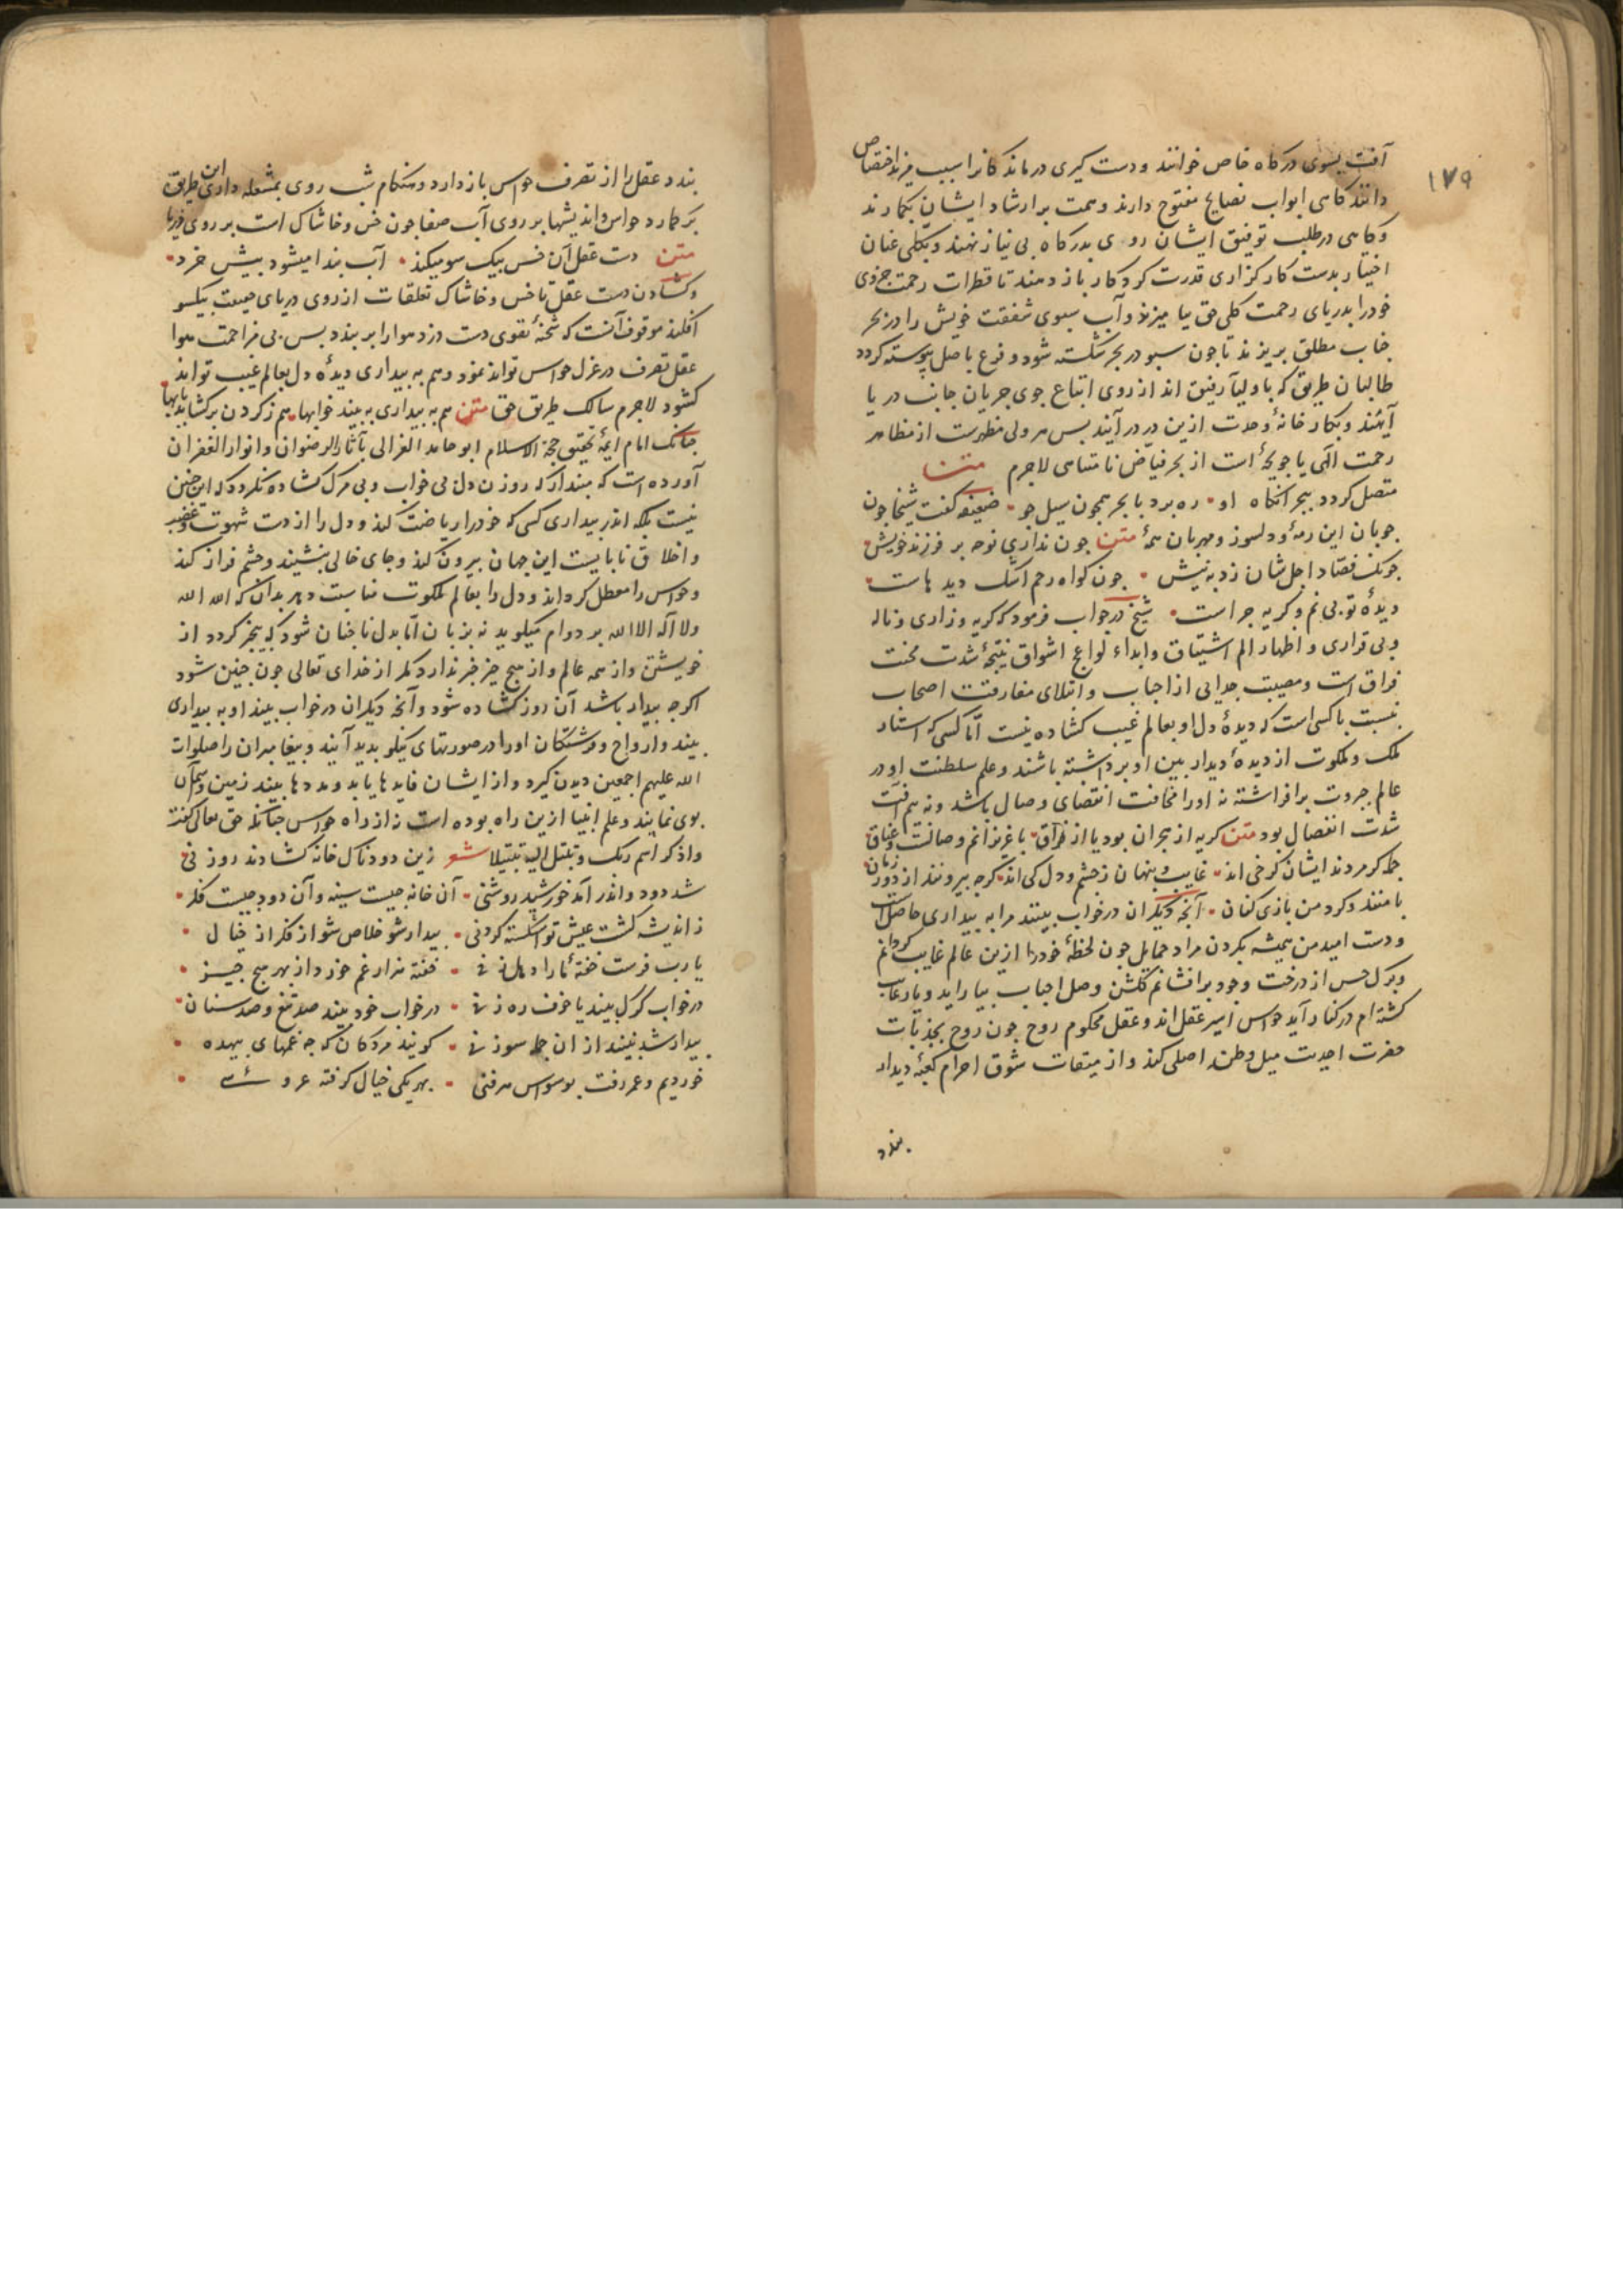 ۱۷۹
آفت بسوی درکاه خاص خوانند و دست کیری درماندکانرا سبب مزید اختصاص
دانند کاهی ابواب نصایح مفتوح دارند و همت بر ارشاد ایشان بکمارند
وکاهی در طلب توفیق ایشان روی بدرکاه بی نیاز نهند و بکلی عنان
اختیار بدست کارکزاری قدرت کردکار باز دهند تا قطرات رحمت جزوی
خودرا بدریای رحمت کلی حق بیامیزند و آب سبوی شفقت خویش را در بحر
جناب مطلق بریزند تا جون سبو در بحر شکسته شود و فرع باصل پیوسته کردد
طالبان طریق که با اولیا رفیق اند از روی اتباع جوی جریان جانب دریا
آیند و بکار خانۀ وحدت ازین در درآیند بس هر ولی مظهریست از مظاهر
رحمت الهی یا جویجۀ است از بحر فیاض نامتناهی لاجرم متن
متصل کردد ببحر آنکاه او ره برد با بحر همجون سیل جو ضعیفه کفت شیخا جون
جوبان این رمۀ و دلسوز و مهربان همۀ متن جون نداری نوحه بر فرزند خویش
جونک فصّاد اجل شان زد به نیش جون کواه رحم اشک دیدهاست
دیدۀ تو بی نم و کریه جراست شیخ در جواب فرمود که کریه و زاری و ناله
وبی قراری و اظهار الم اشتیاق و ابداء لواعج اشواق نتیجۀ شدت محنت
فراق است و مصیبت جدایی از احباب و ابتلای مفارقت اصحاب
نسبت با کسی است که دیدۀ دل او بعالم غیب کشاده نیست امّا کسی که استار
ملک و ملکوت از دیدۀ دیدار بین او برداشته باشند و علم سلطنت او در
عالم جبروت برافراشته نه اورا مخافت انقضای وصال باشد و نه بیم آفت
شدت انفصال بود متن کریه از هجران بود یا از فراق با عزیزانم وصالست و عناق
جمله کر مردند ایشان کر حی اند غایب و بنهان ز جشم و دل کی اند کرجه بیرونند از دور زمان
با منند و کرد من بازی کنان آنجه دیکران در خواب بینند مرا به بیداری حاصل است
و دست امید من همیشه بکردن مراد حمایل جون لحظۀ خودرا ازین عالم غایب کردانم
و برک حس از درخت وجود برافشانم کلشن وصل احباب بیاراید و یار غایب
کشته ام در کنار آید حواس اسیر عقل اند و عقل محکوم روح جون روح بجذبات
حضرت احدیت میل وطن اصلی کند و از میقات شوق احرام کعبۀ دیدار
بندد
بندد عقل را از تصرف حواس باز دارد و هنکام شب روی بمشعله داری این طریق
برکمارد حواس و اندیشها بر روی آب صفا جون خس و خاشاک است بر روی دریا
متن دست عقل آن خس بیک سو میکند آب بیدا میشود بیش خرد
و کشادن دست عقل تا خس و خاشاک تعلقات از روی دریای جمعیت بیکسو
افکند موقوف آنست که شحنۀ تقوی دست دزد هوا را بر بندد بس بی مزاحمت هوا
عقل تصرف در عزل حواس تواند نمود و هم به بیداری دیدۀ دل بعالم غیب تواند
کشود لاجرم سالک طریق حق متن هم به بیداری ببیند خوابها هم ز کردون برکشاید بابها
جنانک امام ایمۀ تحقیق حجة الاسلام ابو حامد الغزالی بآثار الرضوان و انوار الغفران
آورده است که مبندار که روزن دل بی خواب و بی مرک کشاده نکردد که این جنین
نیست بلکه اندر بیداری کسی که خودرا ریاضت کند و دل را از دست شهوت و غضب
و اخلاق نابایست این جهان بیرون کند و جای خالی بنشیند و جشم فراز کند
و حواس را معطل کرداند و دل را بعالم ملکوت مناسبت دهد بدان که الله الله
ولا اله الا الله بر دوام میکوید نه بزبان امّا بدل تا جنان شود که بیخبر کردد از
خویشتن و از همه عالم و از هیج جیز خبر ندارد مکر از خدای تعالی جون جنین شود
اکرجه بیدار باشد آن روزن کشاده شود و آنجه دیکران در خواب بیند او به بیداری
بیند و ارواح و فرشتکان اورا در صورتهای نیکو بدید آیند و بیغامبران را صلوات
الله علیهم اجمعین دیدن کیرد و از ایشان فایدها یابد و مددها بیند زمین و آسمان
بوی نمایند و علم انبیا ازین راه بوده است نه از راه حواس جنانکه حق تعالی کفت
واذکر اسم ربک و تبتل الیه تبتیلا شعر زین دودناک خانه کشادند روزنی
شد دود و اندر آمد خورشید روشنی آن خانه جیست سینه و آن دود جیست فکر
ز اندیشه کشت عیش تو اشکسته کردنی بیدار شو خلاص شو از فکر از خیال
یا رب فرست خفتۀ مارا دهل زنی خفته هزار غم خورد از بهر هیج جیز
در خواب کرک بیند یا خوف ره زنی در خواب خود بیند صد تیغ و صد سنان
بیدار شد نبیند از ان جمله سوزنی کویند مردکان که جه غمهای بیهده
خوردیم و عمر رفت بوسواس هر فنی بهر یکی خیال کرفته عروسئ